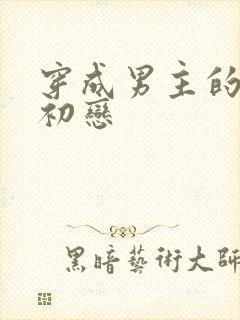 穿成男主的
初戀
黑暗藝術大師